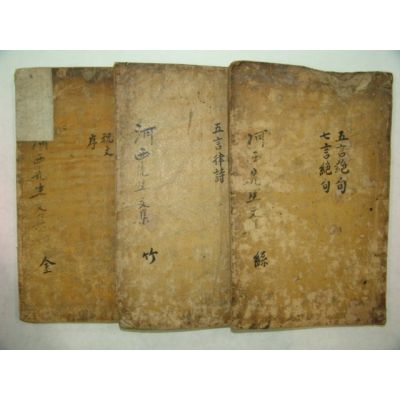 五言絶句
七言絶句
河西先生文
絲
五言律詩
河西先生文集
竹
祝文
序
河西先生文
金